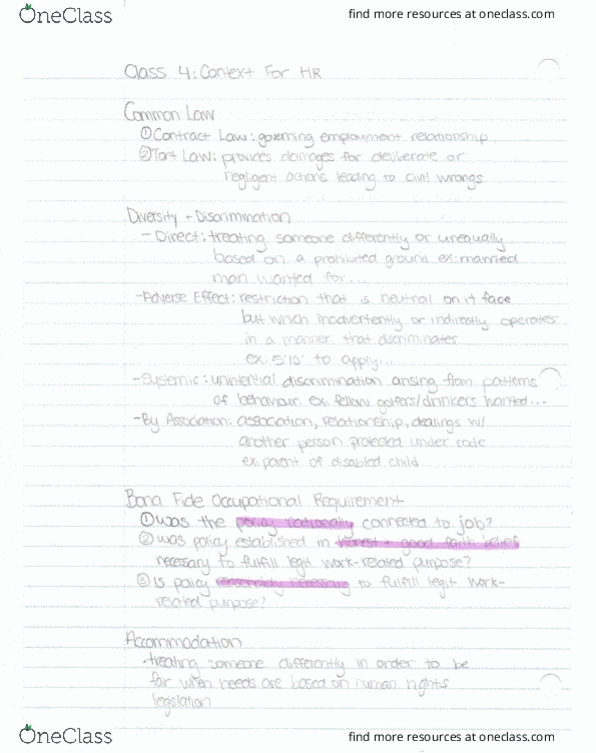 OneClass
find more resources at oneclass.com
Class 4: Context For HR
Common Law
① Contract Law: governing employment relationship
② Tort Law: provides damages for deliberate or
negligent actions leading to civil wrongs
Diversity + Discrimination
- Direct: treating someone differently or unequally
based on a prohibited ground ex: married
man wanted for...
- Adverse Effect: restriction that is neutral on it face
but which inadvertently or indirectly operates
in a manner that discriminates
ex. 5'10" to apply...
- Systemic: unintential discrimination arising from patterns
of behaviour ex. fellow golfers/drinkers wanted...
- By Association: association, relationship, dealings w/
another person protected under code
ex: parent of disabled child
Bona Fide Occupational Requirement
① was the policy rationally connected to job?
② was policy established in honest + good faith belief
necessary to fulfill legit work-related purpose?
③ Is policy reasonably necessary to fulfill legit work-
related purpose?
Accommodation
· treating someone differently in order to be
fair when needs are based on human rights
legislation
OneClass
find more resources at oneclass.com